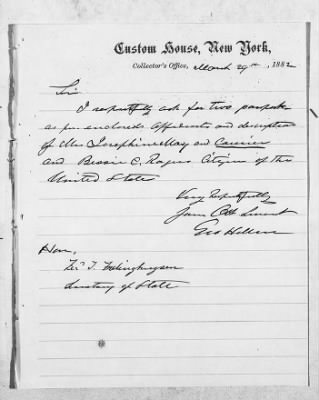 Custom House, New York,
Collector's Office, March 29th, 1882
Sir
I respectfully ask for two passports
as per enclosed affidavits and description
of Mrs Josephine May and
and Bessie C. Rogers Citizens of the
United States
Very Respectfully
Your Obt Servant
Geo
Hon.
Fred T. Frelinghuysen
Secretary of State